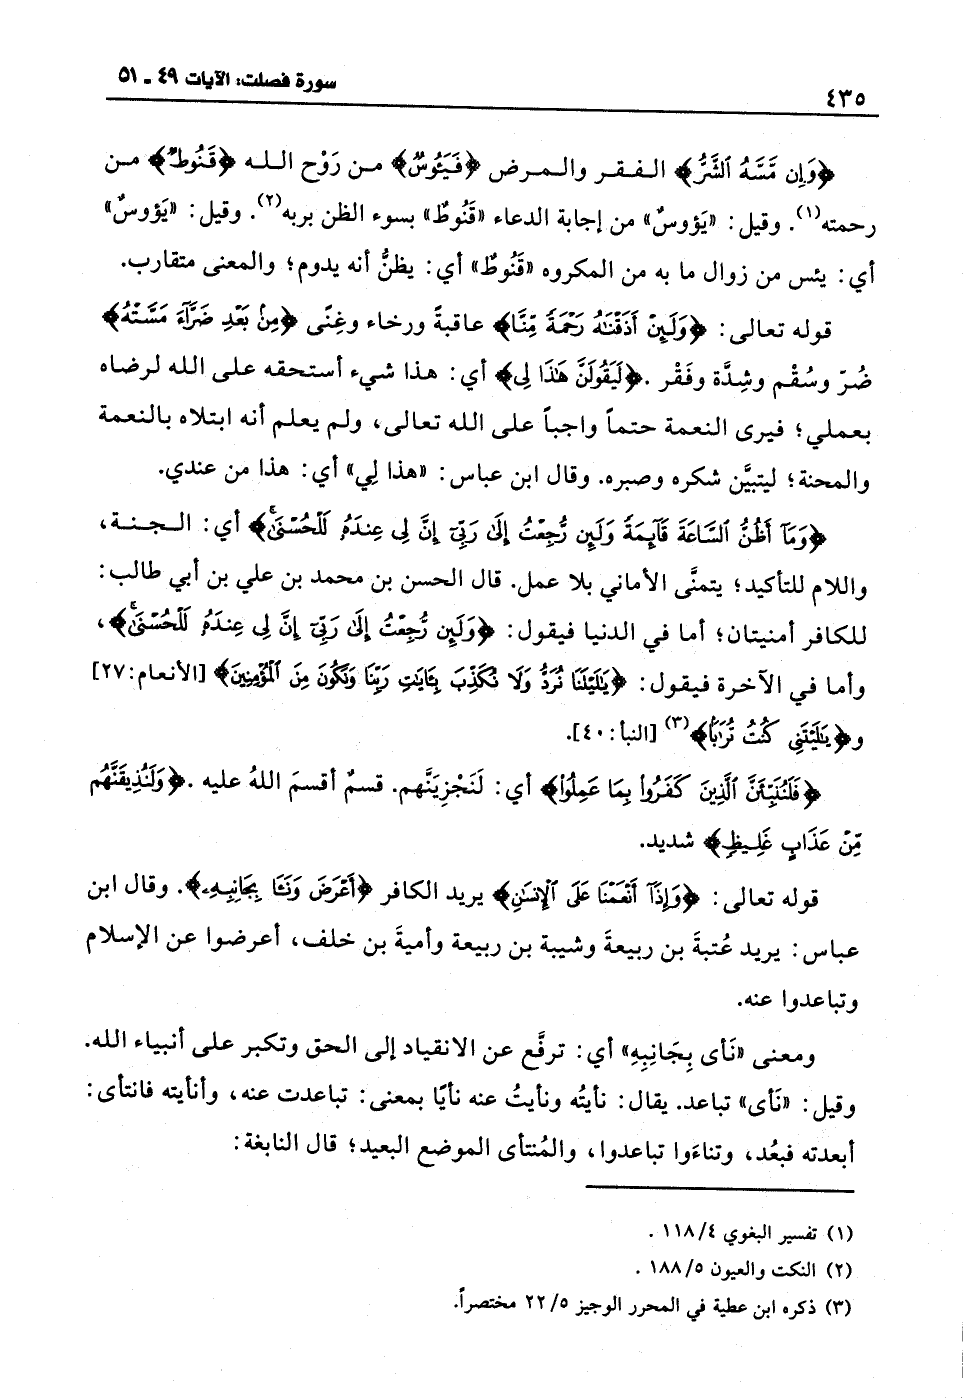 سورة فصلت: الآيات ٤٩ ـ ٥١
٤٣٥
﴿وَإِن مَّسَّهُ ٱلشَّرُّ﴾ الـفـقـر والـمـرض ﴿فَيَـُٔوسٌ﴾ مـن رَوْح الـلـه ﴿قَنُوطٌ﴾ مـن
رحمته(١). وقيل: «يَؤوسٌ» من إجابة الدعاء «قَنُوطٌ» بسوء الظن بربه(٢). وقيل: «يَؤوسٌ»
أي: يئس من زوال ما به من المكروه «قَنُوطٌ» أي: يظنُّ أنه يدوم؛ والمعنى متقارب.
قوله تعالى: ﴿وَلَئِنْ أَذَقْنَٰهُ رَحْمَةً مِّنَّا﴾ عاقبةً ورخاء وغِنًى ﴿مِنۢ بَعْدِ ضَرَّآءَ مَسَّتْهُ﴾
ضُرّ وسُقْم وشِدَّة وفَقْر. ﴿لَيَقُولَنَّ هَٰذَا لِى﴾ أي: هذا شيء أستحقه على الله لرضاه
بعملي؛ فيرى النعمة حتماً واجباً على الله تعالى، ولم يعلم أنه ابتلاه بالنعمة
والمحنة؛ ليتبيَّن شكره وصبره. وقال ابن عباس: «هذا لِي» أي: هذا من عندي.
﴿وَمَآ أَظُنُّ ٱلسَّاعَةَ قَآئِمَةً وَلَئِن رُّجِعْتُ إِلَىٰ رَبِّىٓ إِنَّ لِى عِندَهُۥ لَلْحُسْنَىٰۚ﴾ أي: الـجـنـة،
واللام للتأكيد؛ يتمنَّى الأماني بلا عمل. قال الحسن بن محمد بن علي بن أبي طالب:
للكافر أمنيتان؛ أما في الدنيا فيقول: ﴿وَلَئِن رُّجِعْتُ إِلَىٰ رَبِّىٓ إِنَّ لِى عِندَهُۥ لَلْحُسْنَىٰۚ﴾،
وأما في الآخرة فيقول: ﴿يَٰلَيْتَنَا نُرَدُّ وَلَا نُكَذِّبَ بِـَٔايَٰتِ رَبِّنَا وَنَكُونَ مِنَ ٱلْمُؤْمِنِينَ﴾ [الأنعام:٢٧]
و﴿يَٰلَيْتَنِى كُنتُ تُرَٰبًۢا﴾(٣) [النبأ: ٤٠].
﴿فَلَنُنَبِّئَنَّ ٱلَّذِينَ كَفَرُوا۟ بِمَا عَمِلُوا۟﴾ أي: لَنَجْزِيَنَّهم. قسمٌ أقسمَ اللهُ عليه. ﴿وَلَنُذِيقَنَّهُم
مِّنْ عَذَابٍ غَلِيظٍ﴾ شديد.
قوله تعالى: ﴿وَإِذَآ أَنْعَمْنَا عَلَى ٱلْإِنسَٰنِ﴾ يريد الكافر ﴿أَعْرَضَ وَنَـَٔا بِجَانِبِهِۦ﴾. وقال ابن
عباس: يريد عُتبةَ بن ربيعةَ وشيبة بن ربيعة وأميةَ بن خلف، أعرضوا عن الإسلام
وتباعدوا عنه.
ومعنى «نَأى بِجَانِبِهِ» أي: ترفَّع عن الانقياد إلى الحق وتكبر على أنبياء الله.
وقيل: «نَأى» تباعد. يقال: نأيتُه ونأيتُ عنه نأيًا بمعنى: تباعدت عنه، وأنأيته فانتأى:
أبعدته فبعُد، وتناءَوا تباعدوا، والمُنتأى الموضع البعيد؛ قال النابغة:
(١) تفسير البغوي ٤/ ١١٨ .
(٢) النكت والعيون ٥/ ١٨٨ .
(٣) ذكره ابن عطية في المحرر الوجيز ٥/ ٢٢ مختصراً.